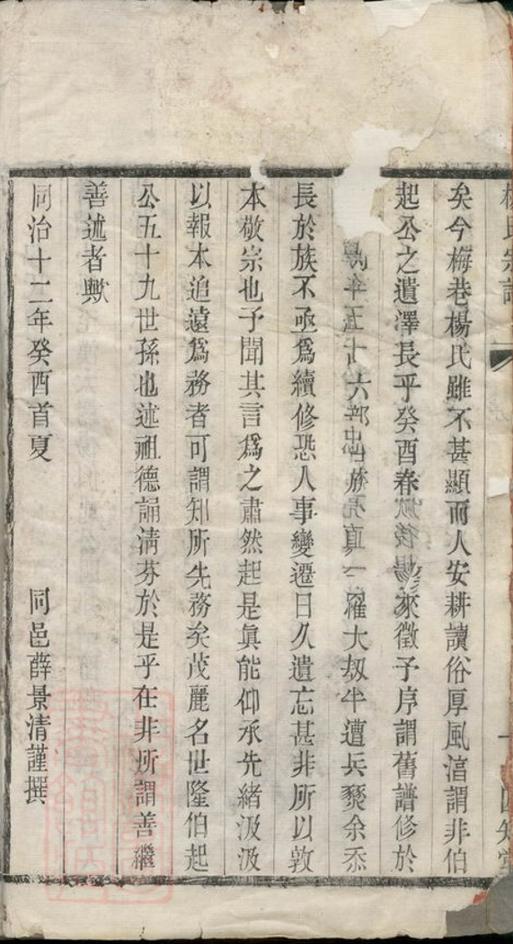 楊氏宗譜
矣今梅巷楊氏雖不甚顯而人安耕讀俗厚風湻謂非伯
起公之遺澤長乎癸酉春 後 來徵予序謂舊譜修於
年五十六 族 真一 罹大刼半遭兵燹余忝
長於族不亟爲續修恐人事變遷日久遺忘甚非所以敦
本敬宗也予聞其言爲之肅然起是眞能仰承先緒汲汲
以報本追遠爲務者可謂知所先務矣茂麗名世隆伯起
公五十九世孫也述祖德誦淸芬於是乎在非所謂善繼
善述者歟
同治十二年癸酉首夏 同邑薛景清謹撰